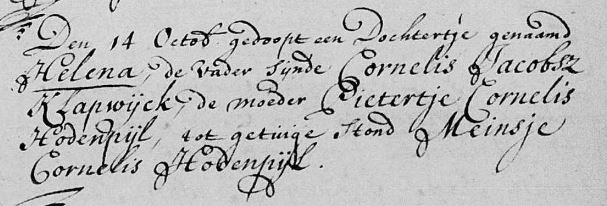 Den 14 Octob. gedoopt een Dochtertje genaamd
Helena, de vader sijnde Cornelis Jacobsz
Klapwijck, de moeder Pietertje Cornelis
Hodenpijl, tot getuige stond Meinsje
Cornelis Hodenpijl.